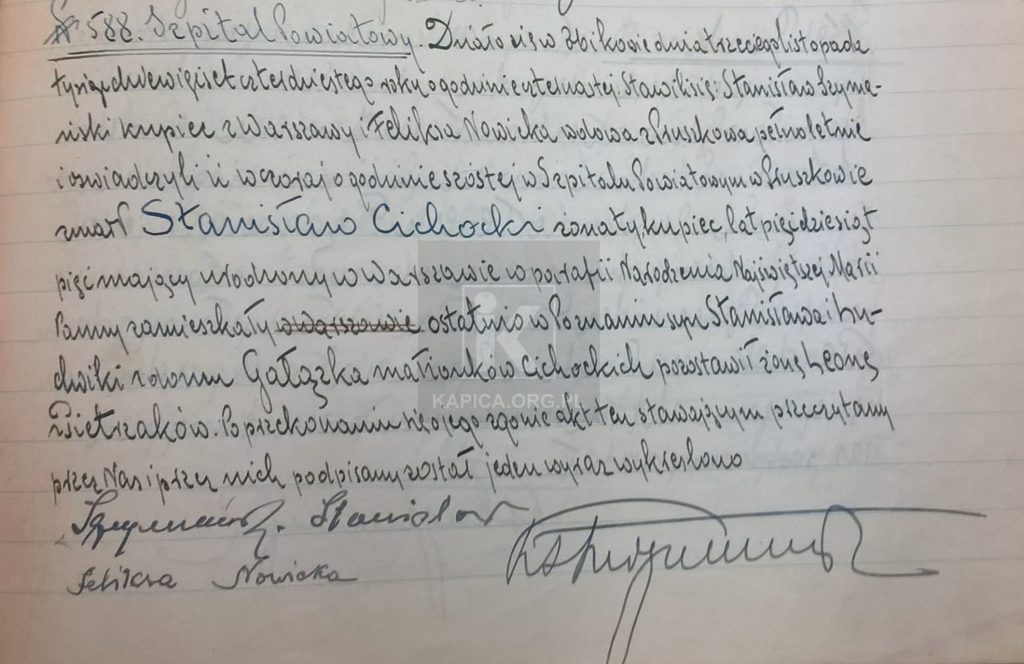 N 588. Szpital Powiatowy. Działo się w Żbikowie dnia trzeciego listopada
tysiąc dziewięćset czterdziestego roku o godzinie czternastej. Stawili się: Stanisław Szyma-
ński kupiec z Warszawy i Feliksa Nowicka wdowa z Pruszkowa pełnoletnie
i oświadczyli iż wczoraj o godzinie szóstej w Szpitalu Powiatowym w Pruszkowie
zmarł Stanisław Cichocki żonaty kupiec, lat pięćdziesiąt
pięć mający urodzony w Warszawie w parafii Narodzenia Najświętszej Marii
Panny zamieszkały w Warszawie ostatnio w Poznaniu syn Stanisława i Lu-
dwiki z domu Gałązka małżonków Cichockich pozostawił żonę Leonę
Pietrzaków. Po przekonaniu się o jego zgonie akt ten stawającym przeczytany
przez Nas i przez nich podpisany został jeden wyraz wykreślono
Szymański Stanisław
Feliksa Nowicka
KAPICA.ORG.PL